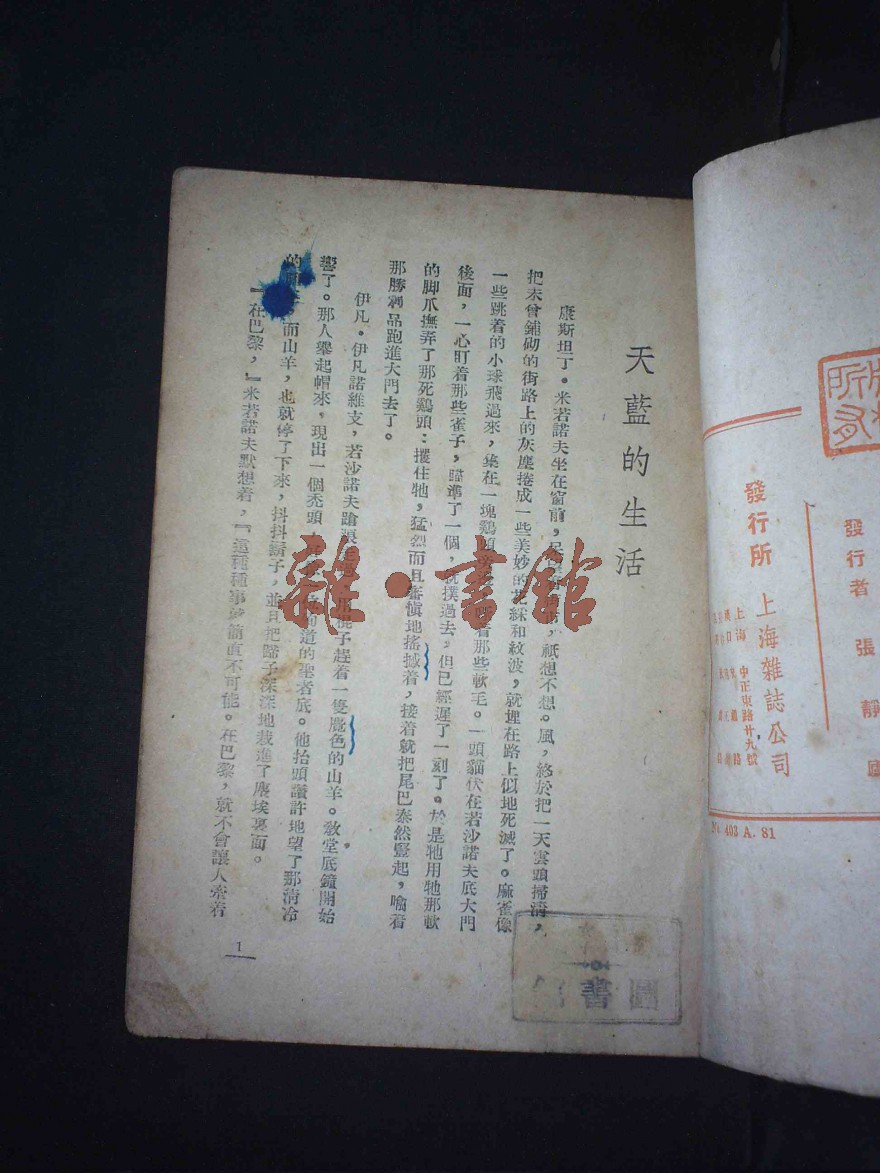 天藍的生活
康斯坦丁。米若諾夫坐在窗前，祇想不想。風，終於把一天雲頭掃清，
把未曾鋪砌的街路上的灰塵捲成一些美妙的花綵和紋波，就埋在路上似地死滅了。麻雀像
一些跳着的小球飛過來，集在一塊鷄頭着那些軟毛。一頭貓伏在若沙諾夫底大門
後面，一心盯着那些雀子，瞄準了一個，就撲過去，但已經遲了一刻了。於是牠用牠那軟
的脚爪撫弄了那死鷄頭：攫住牠，猛烈而且審愼地搖撼着，接着就把尾巴泰然豎起，喻着
那勝利品跑進大門去了。
伊凡。伊凡諾維支，若沙諾夫棍子趕着一隻麑色的山羊。敎堂底鐘開始
響了。那人舉起帽來，現出一個禿頭道的聖者底。他抬頭讚許地望了那淸冷
的而山羊，也就停了下來，抖抖鬍子，並且把蹄子深深地栽進了塵埃裏面。
『在巴黎，』米若諾夫默想着，『這種種事於簡直不可能。在巴黎，就不會讓人牽着
1
發行者 張靜廬
發行所 上海雜誌公司
上海 中正東路廿九號
No. 403 A. 81
所有
圖書
雜·書館